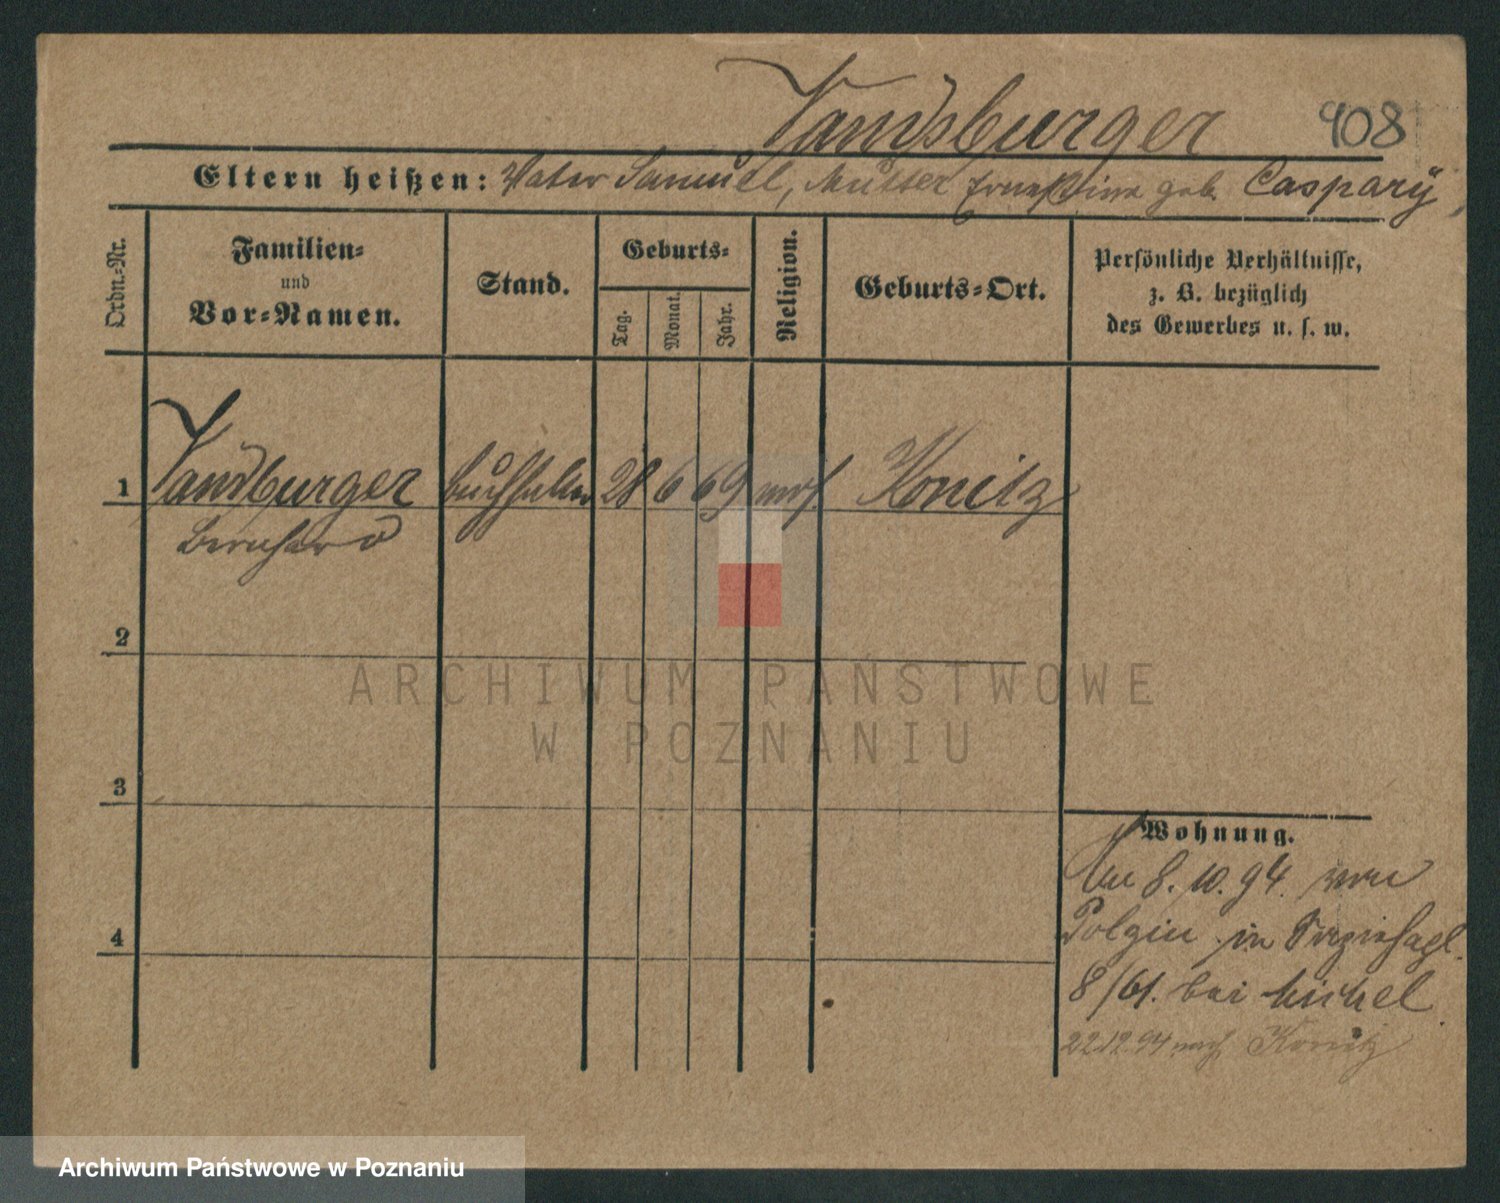 Vandsburger 908
Eltern heißen: Vater Samuel, Mutter Ernestine geb. Caspary,
Ordn.-Nr.
Familien-
und
Vor-Namen.
Stand.
Geburts-
Tag.
Monat.
Jahr.
Religion.
Geburts-Ort.
Persönliche Verhältnisse,
z. B. bezüglich
des Gewerbes u. s. w.
1 Vandsburger Buchhalter 28 6 69 mos. Konitz
Bernhard
2
3
4
Wohnung.
8. 10. 94. von
Polzin in
8/61. bei Michel.
22.12.94 nach Konitz
ARCHIWUM PAŃSTWOWE
W POZNANIU
Archiwum Państwowe w Poznaniu